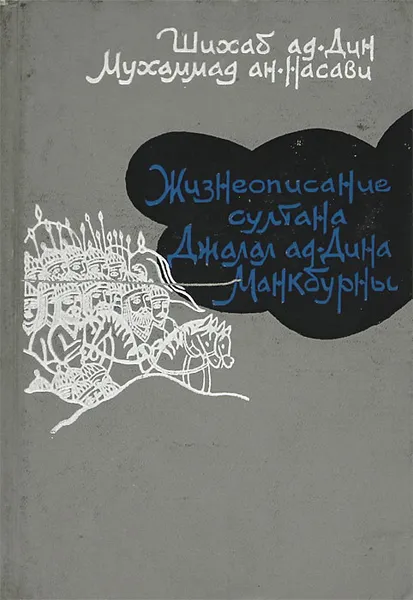 Шихаб ад-Дин
Мухаммад ан-Насави
Жизнеописание
султана
Джалал ад-Дина
Манкбурны